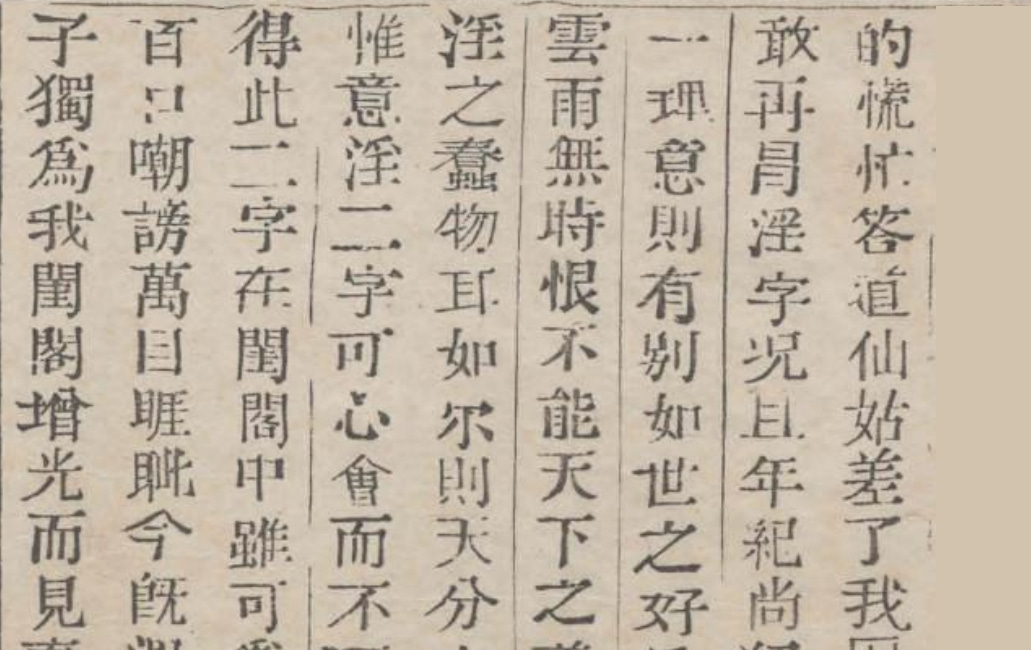 的慌忙答道仙姑差了我因
敢再冒淫字况且年紀尚
一理意則有别如世之好
雲雨無時恨不能天下之
淫之蠢物耳如尔則天分
惟意淫二字可心會而不
得此二字在閨閣中雖可
百口嘲謗萬目睚眦今旣
子獨爲我閨閣增光而見